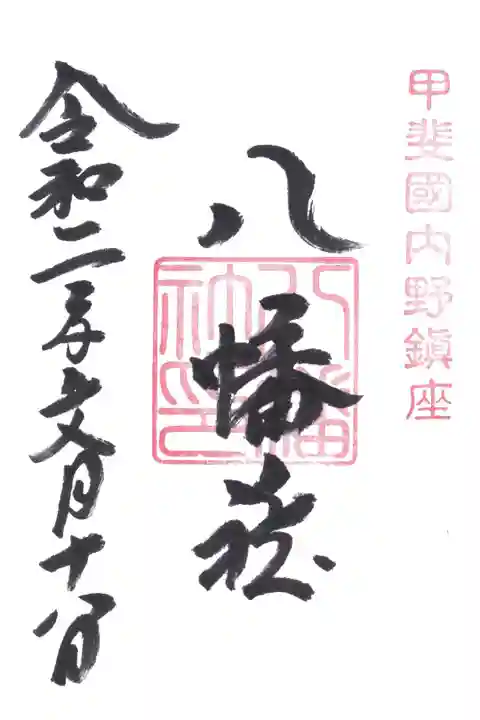 甲斐國内野鎮座
八幡社
八幡
社印
令和二年文月十八日